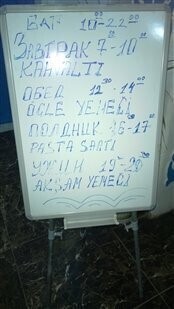 БАР 10-22⁰⁰
ЗАВТРАК 7-10⁰⁰
KAHVALTI
ОБЕД 12³⁰-14⁰⁰
ÖGLE YEMEĞİ
ПОЛДНИК 16-17⁰⁰
PASTA SAATİ
УЖИН 19⁰⁰-20³⁰
AKŞAM YEMEĞİ